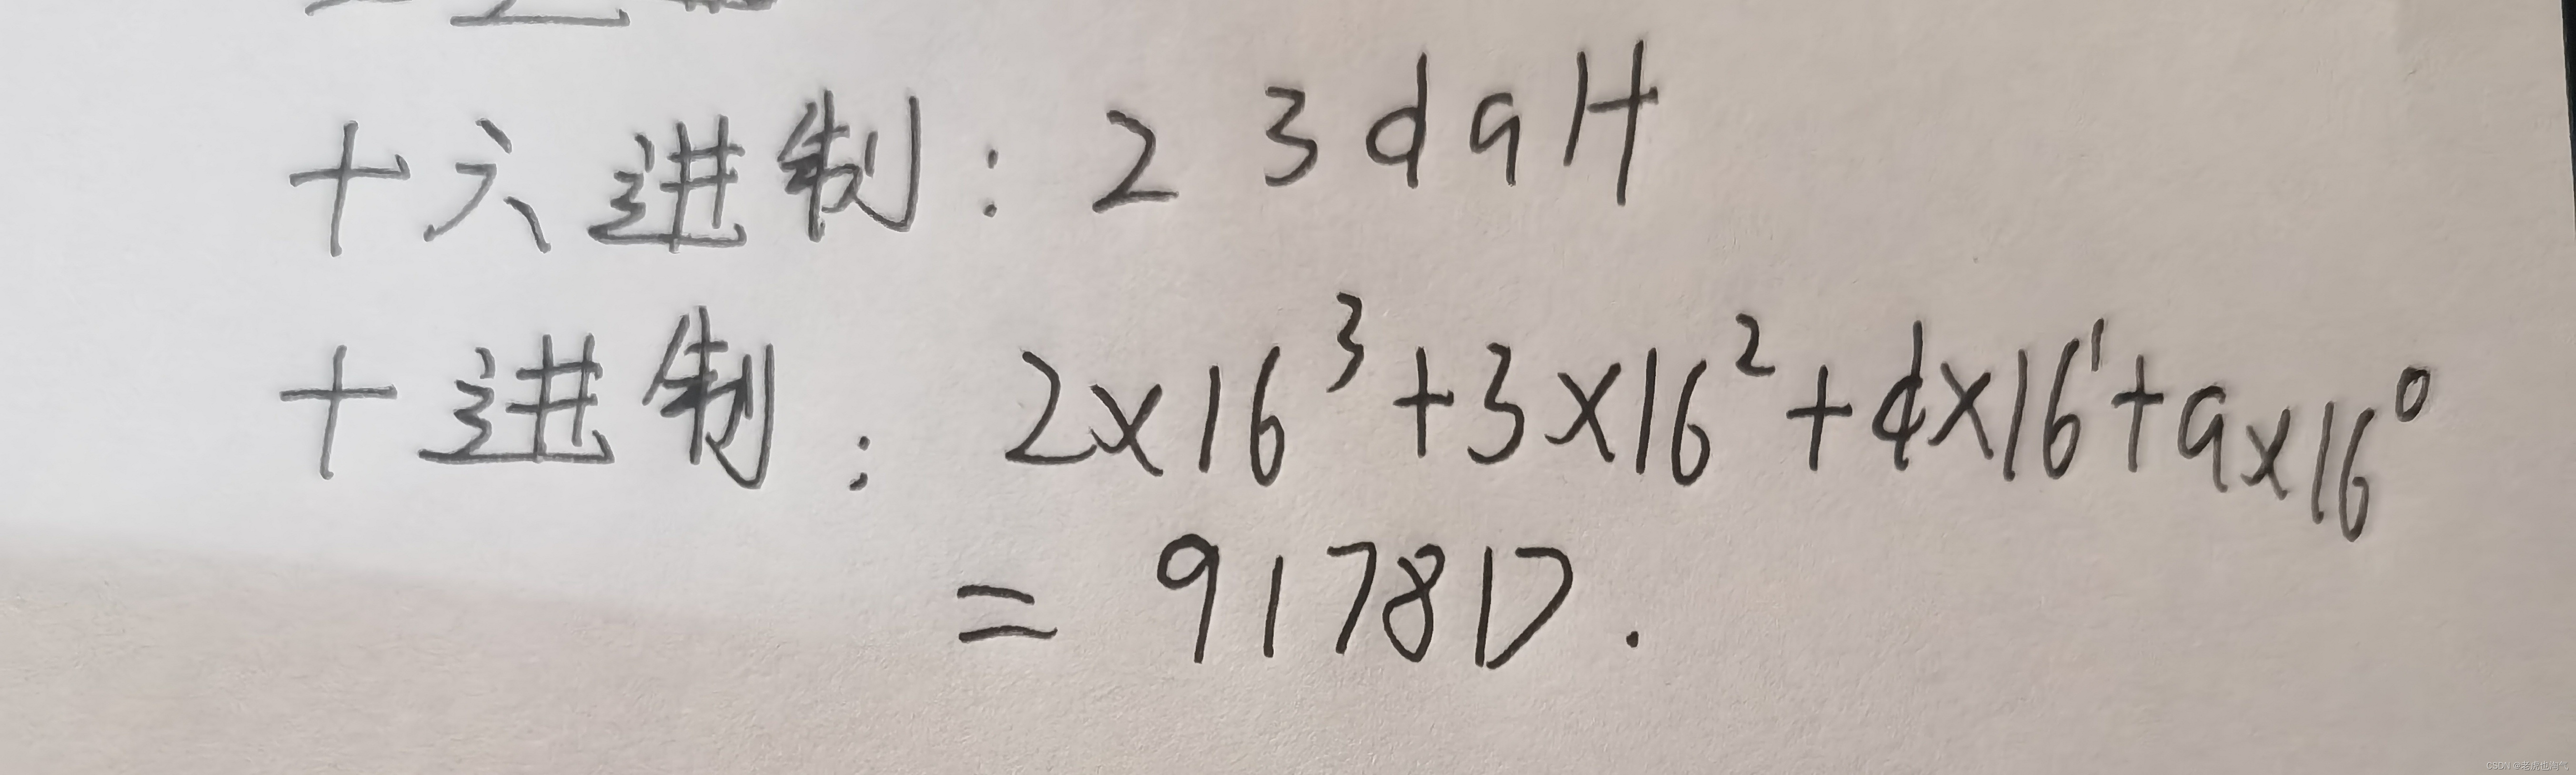 十六进制：23daH
十进制：2×16³+3×16²+d×16¹+a×16⁰
=9178D.